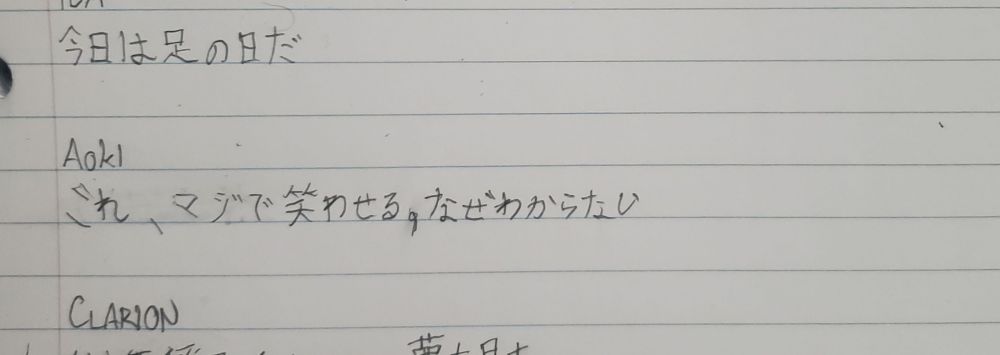 今日は足の日だ
Aoki
これ、マジで笑わせる,なぜわからない
CLARION